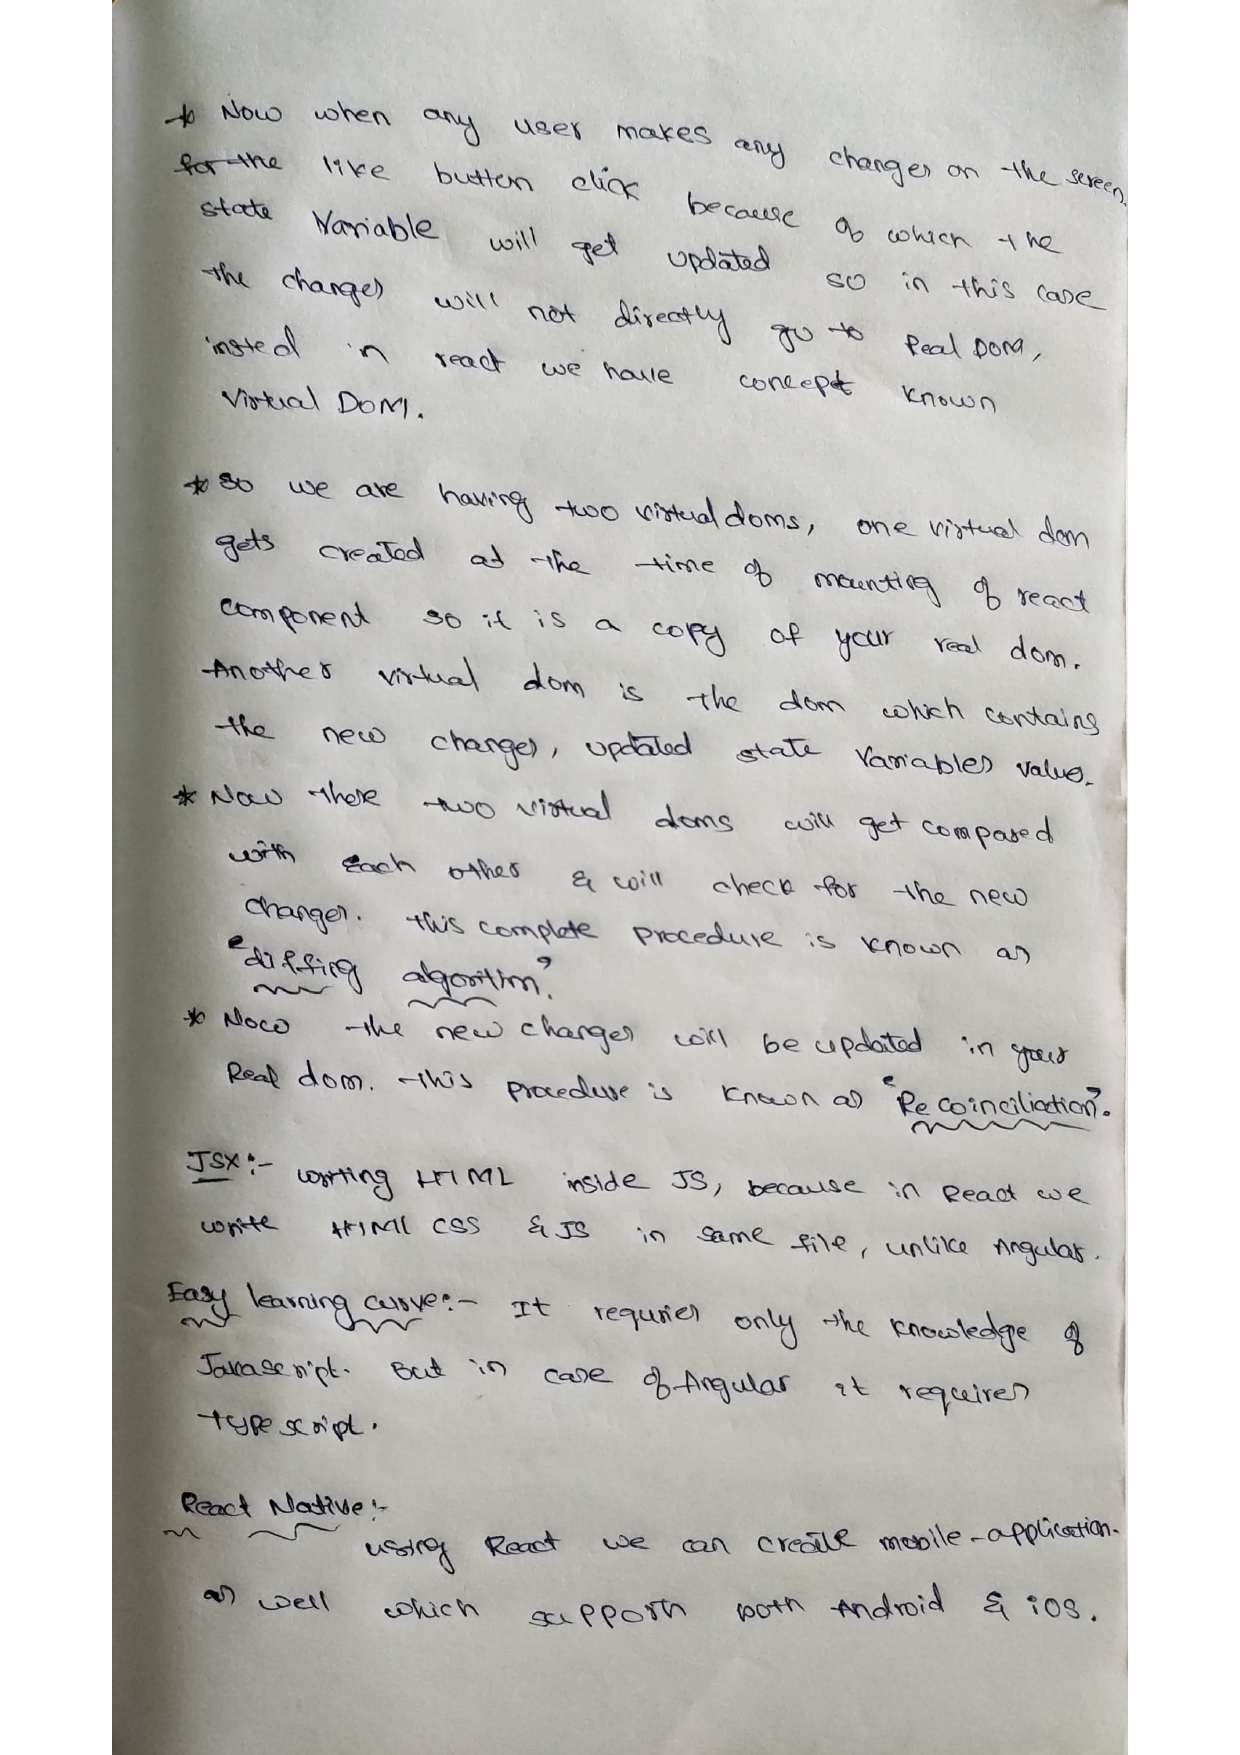 * Now when any user makes any changes on the screen,
for the like button click because of which the
state Variable will get updated so in this case
the changes will not directly go to Real DOM,
insted in react we have concept known
Virtual DOM.
* So we are having two virtual doms, one virtual dom
gets created at the time of mounting of react
component so it is a copy of your real dom.
Another virtual dom is the dom which contains
the new changes, updated state Variables value.
* Now these two virtual doms will get compared
with each other & will check for the new
changes. this complete procedure is known as
"diffing algorithm."
* Now the new changes will be updated in your
Real dom. this procedure is known as "Recoinciliation".
JSX:- writing HTML inside JS, because in React we
write HTML CSS & JS in same file, unlike Angular.
Easy learning curve:- It requries only the knowledge of
Javascript. But in case of Angular it requires
typescript.
React Native:-
using React we can create mobile-application.
as well which supports both Android & iOS.